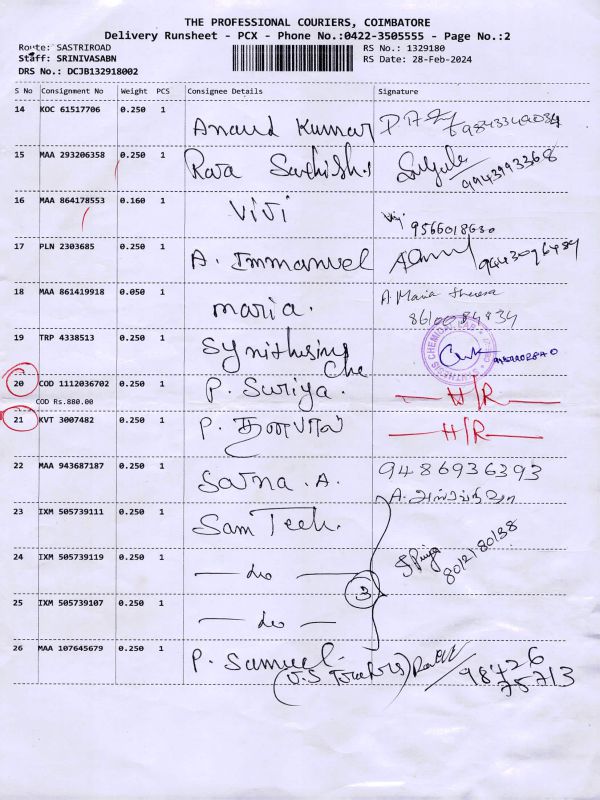 THE PROFESSIONAL COURIERS, COIMBATORE
Delivery Runsheet - PCX - Phone No.:0422-3505555 - Page No.:2
Route: SASTRIROAD RS No.: 1329180
Staff: SRINIVASABN RS Date: 28-Feb-2024
DRS No.: DCJB132918002
S No Consignment No Weight PCS Consignee Details Signature
14 KOC 61517706 0.250 1 Anand Kumar
15 MAA 293206358 0.250 1 9943993368
16 MAA 864178553 0.160 1 ViJi 9566018630
17 PLN 2303685 0.250 1 A. Immanuel
18 MAA 861419918 0.050 1 maria. A Maria theresa
8610084834
19 TRP 4338513 0.250 1
20 COD 1112036702 0.250 1 P. Suriya. H/R
COD Rs.880.00
21 KVT 3007482 0.250 1 P. தனபால் H/R
22 MAA 943687187 0.250 1 Sarna. A. 9486936393
23 IXM 505739111 0.250 1 Sam Tech.
24 IXM 505739119 0.250 1 do
3
25 IXM 505739107 0.250 1 do
26 MAA 107645679 0.250 1 P. Samuel. 98426
75713